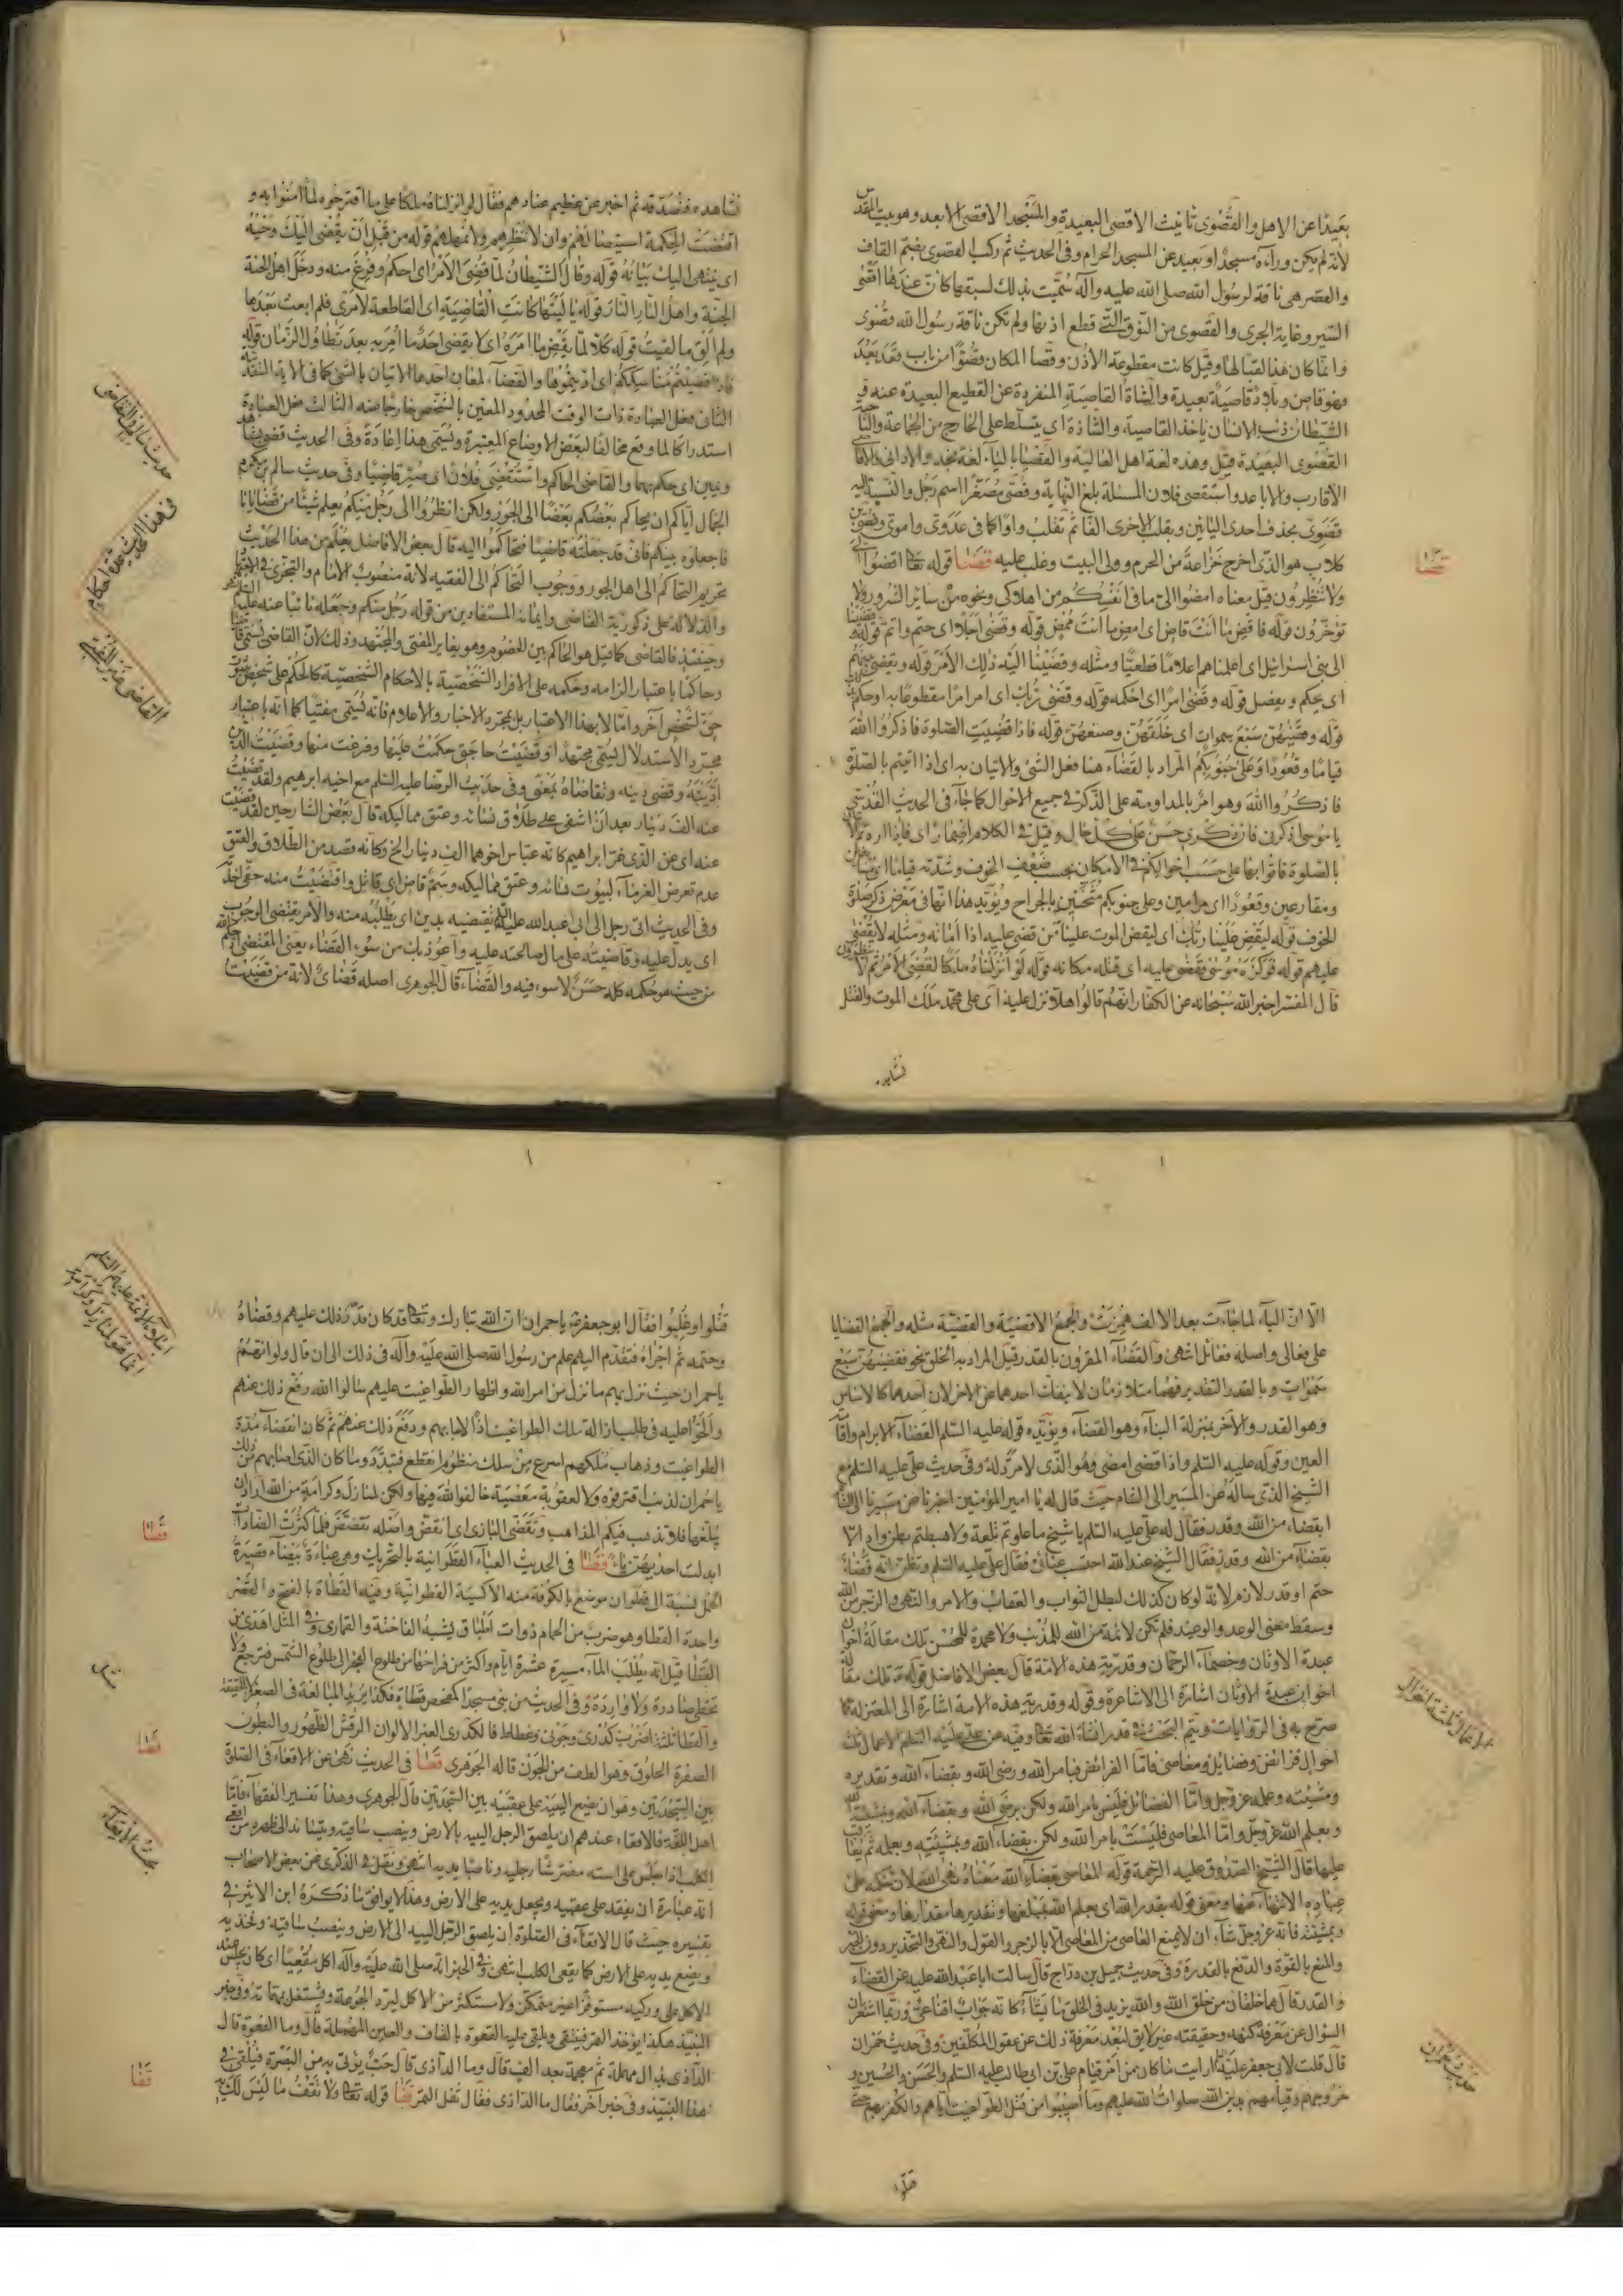 بعيدا عن الاهل والقصوى تانيث الاقصى البعيدة والمسجد الاقصى الابعد وهو بيت المقدس
لانه لم يكن وراءه مسجد او بعيد عن المسجد الحرام وفى الحديث ثم ركب القصوى بضم القاف
والقصر هى ناقة لرسول الله صلى الله عليه وآله سميت بذلك لسبقها كان عندها اقصى
السير وغاية الجرى والقصوى من النوق التى قطع اذنها ولم تكن ناقة رسول الله قصوى
وانما كان هذا لقبا لها وقيل كانت مقطوعة الاذن وقصا المكان قصوا من باب قعد بعد
فهو قاص وبلاد قاصية بعيدة والشاة القاصية المنفردة عن القطيع البعيدة عنه
الشيطان ذئب الانسان ياخذ القاصية والشاذة اى يتسلط على الخارج من الجماعة
القصوى البعيدة قيل وهذه لغة اهل العالية والقصيا بالياء لغة نجد والادانى والاقاصى
الاقارب والاباعد واستقصى فلان المسئلة بلغ النهاية وقصى مصغرا اسم رجل والنسبة اليه
قصوى بحذف احدى اليائين وبقلب الاخرى الفا ثم تقلب واوا كما فى عدوى واموى وقصى بن
كلاب هو الذى اخرج خزاعة من الحرم وولى البيت وغلب عليه قضا قوله تعالى اقضوا الى
ولا تنظرون قيل معناه امضوا الى ما فى انفسكم من اهلاكى ونحوه من سائر الشرور ولا
تؤخرون قوله فاقض ما انت قاض اى امض ما انت ممض قوله وقضى اجلا اى حتم واتم قوله وقضينا
الى بنى اسرائيل اى اعلمناهم اعلاما قطعيا ومثله وقضينا اليه ذلك الامر قوله ويقضى بينهم
اى يحكم ويفصل قوله وقضى امرا اى احكمه قوله وقضى ربك اى امر امرا مقطوعا به او حكم
قوله وقضيهن سبع سموات اى خلقهن وصنعهن قوله فاذا قضيت الصلوة فاذكروا الله
قياما وقعودا وعلى جنوبكم المراد بالقضاء هنا فعل الشئ والاتيان به اى اذا اتيتم بالصلوة
فاذكروا الله وهو امر بالمداومة على الذكر فى جميع الاحوال كما جاء فى الحديث القدسى
يا موسى اذكرنى فان ذكرى حسن على كل حال وقيل فى الكلام اضمار اى فاذا اردتم
بالصلوة فاتوا بها على حسب احوالكم فى الامكان بحسب ضعف الخوف وشدته قياما
ومقارعين وقعودا اى مرامين وعلى جنوبكم مثخنين بالجراح ويؤيد هذا انها فى معرض ذكر صلوة
الخوف قوله ليقض علينا ربك اى ليقض الموت علينا من قضى عليه اذا اماته ومثله لا يقضى
عليهم قوله فوكزه موسى فقضى عليه اى قتله مكانه قوله لو انزلنا ملكا لقضى الامر ثم لا ينظرون
قال المفسر اخبر الله سبحانه عن الكفار انهم قالوا هلا نزل عليه اى على محمد ملك الموت والقتل
قضا
نشاهده
نشاهده فنصدقه ثم اخبر عن عظيم عنادهم فقال لو انزلناه ملكا على ما اقترحوه لما امنوا به و
اقتضت الحكمة استيصالهم وان لا ننظرهم ولا نمهلهم قوله من قبل ان يقضى اليك وحيه
اى ينتهى اليك بيانه قوله وقال الشيطان لما قضى الامر اى احكم وفرغ منه ودخل اهل الجنة
الجنة واهل النار النار قوله يا ليتها كانت القاضية اى القاطعة لامرى فلم ابعث بعدها
ولم الق ما لقيت قوله كلا لما يقض ما امره اى لا يقضى احد ما امر به بعد تطاول الزمان قوله
فاذا قضيتم مناسككم اى اديتموها والقضاء لمعان احدها الاتيان بالشئ كما فى الاية المتقدمة
الثانى فعل العبادة ذات الوقت المحدود المعين بالشخص خارجا عنه الثالث فعل العبادة
استدراكا لما وقع مخالفا لبعض الاوضاع المعتبرة ويسمى هذا اعادة وفى الحديث قضى
ويمين اى حكم بهما والقاضى الحاكم واستقضى فلان اى صير قاضيا وفى حديث سالم بن مكرم
الجمال اياكم ان يحاكم بعضكم بعضا الى الجور ولكن انظروا الى رجل منكم يعلم شيئا من قضايانا
فاجعلوه بينكم فانى قد جعلته قاضيا فتحاكموا اليه قال بعض الافاضل يعلم من هذا الحديث
تحريم التحاكم الى اهل الجور ووجوب التحاكم الى الفقيه لانه منصوب الامام والتجزى فى الاجتهاد
والدلالة على ذكورية القاضى وايمانه المستفادين من قوله رجل منكم وجعله نائبا عنه عليه السلم
وحينئذ فالقاضى كما قيل هو الحاكم بين الخصوم وهو يغاير المفتى والمجتهد وذلك لان القاضى يسمى قاضيا
وحاكما باعتبار الزامه وحكمه على الافراد الشخصية بالاحكام الشخصية كالحكم على شخص بثبوت
حق لشخص آخر واما لا بهذا الاعتبار بل بمجرد الاخبار والاعلام فانه يسمى مفتيا كما انه باعتبار
مجرد الاستدلال يسمى مجتهدا وقضيت حاجتى حكمت عليها وفرغت منها وقضيت الدين
اديته وقضى دينه وتقاضاه بمعنى وفى حديث الرضا عليه السلم مع اخيه ابرهيم ولقد قضيت
عنه الف دينار بعد ان اشفى على طلاق نسائه وعتق مماليكه قال بعض الشارحين لقد قضيت
عنه اى عن الذى غر ابراهيم كانه عباس اخوهما الف دينار الخ وكانه قصد من الطلاق والعتق
عدم تعرض الغرماء لبيوت نسائه وعتق مماليكه وسم قاض اى قاتل واقتضيت منه حقى اخذ
وفى الحديث اتى رجل الى ابى عبد الله عليه السلم يقتضيه بدين اى يطلبه منه والامر يقتضى الوجوب
اى يدل عليه وقاضيته على مال صالحته عليه واعوذ بك من سوء القضاء يعنى المقتضى اذ حكم الله
من حيث هو حكمه كله حسن لا سوء فيه والقضاء قال الجوهرى اصله قضاى لانه من قضيت
فى هذا الحديث عدة احكام
القاضى غير المفتى
الا ان الياء لما جاءت بعد الالف همزت والجمع الاقضية والقضية مثله والجمع القضايا
على فعالى واصله فعائل انتهى والقضاء المقرون بالقدر قيل المراد به الخلق نحو فقضيهن سبع
سموات وبالقدر التقدير فهما متلازمان لا ينفك احدهما عن الاخر لان احدهما كالاساس
وهو القدر والآخر بمنزلة البناء وهو القضاء ويؤيده قوله عليه السلم القضاء الابرام واقامة
العين وقوله عليه السلم واذا قضى امضى وهو الذى لا مرد له وفى حديث على عليه السلم مع
الشيخ الذى ساله عن المسير الى الشام حيث قال له يا امير المؤمنين اخبرنا عن مسيرنا الى الشام
ابقضاء من الله وقدر فقال له على عليه السلم يا شيخ ما علوتم تلعة ولا هبطتم بطن واد الا
بقضاء من الله وقدر فقال الشيخ عند الله احتسب عنائى فقال على عليه السلم وتظن انه قضاء
حتم او قدر لازم لانه لو كان كذلك لبطل الثواب والعقاب والامر والنهى والزجر من الله
وسقط معنى الوعد والوعيد فلم تكن لائمة من الله للمذنب ولا محمدة للمحسن تلك مقالة اخوان
عبدة الاوثان وخصماء الرحمان وقدرية هذه الامة قال بعض الافاضل قوله تلك مقالة
اخوان عبدة الاوثان اشارة الى الاشاعرة وقوله وقدرية هذه الامة اشارة الى المعتزلة كما
صرح به فى الروايات ويتم البحث فى قدر انشاء الله تعالى وفيه عن على عليه السلم الاعمال ثلث
احوال فرائض وفضائل ومعاصى فاما الفرائض فبامر الله ورضى الله وبقضاء الله وتقديره
ومشيته وعلمه عز وجل واما الفضائل فليس بامر الله ولكن برضى الله وبقضاء الله وبمشيئة الله
وبعلم الله عز وجل واما المعاصى فليست بامر الله ولكن بقضاء الله وبمشيئته وبعلمه ثم يعاقب
عليها قال الشيخ الصدوق عليه الرحمة قوله المعاصى بقضاء الله معناه نهى الله لان حكمه على
عباده الانتهاء عنها ومعنى قوله بقدر الله اى يعلم الله بمبلغها وتقديرها مقدارها ومعنى قوله
وبمشيئته فانه عز وجل شاء ان لا يمنع العاصى من المعاصى الا بالزجر والقول والنهى والتحذير دون الجبر
والمنع بالقوة والدفع بالقدرة وفى حديث جميل بن دراج قال سالت ابا عبد الله عليه عن القضاء
والقدر قال هما خلقان من خلق الله والله يزيد فى الخلق ما يشاء كانه جواب اقناعى وربما اشعر ان
السؤال عن معرفة كنهه وحقيقته غير لايق لبعد معرفة ذلك عن عقول المكلفين وفى حديث حمران
قال قلت لابى جعفر عليه السلم ارايت ما كان من امر قيام على بن ابى طالب عليه السلم والحسن والحسين و
خروجهم وقيامهم بدين الله صلوات الله عليهم وما اصيبوا من قتل الطواغيت اياهم والظفر بهم حتى
الاعمال ثلثة احوال
حديث حمران
قتلوا
قتلوا وغلبوا فقال ابو جعفر يا حمران ان الله تبارك وتعالى قد كان قدر ذلك عليهم وقضاه
وحتمه ثم اجراه فتقدم اليهم علم من رسول الله صلى الله عليه وآله فى ذلك الى ان قال ولو انهم
يا حمران حيث نزل بهم ما نزل من امر الله واظهار الطواغيت عليهم سالوا الله رفع ذلك عنهم
والحوا عليه فى طلب ازالة ملك الطواغيت اذا لاجابهم ودفع ذلك عنهم ثم كان انقضاء مدة
الطواغيت وذهاب ملكهم اسرع من سلك منظوم انقطع فتبدد وما كان الذى اصابهم من ذلك
يا حمران لذنب اقترفوه ولا لعقوبة معصية خالفوا الله فيها ولكن لمنازل وكرامة من الله اراد ان
يبلغها فلا تذهب فيكم المذاهب وتقضى البازى اى انقض واصله تقضض فلما كثرت الضادات
ابدلت احديهن ياء قطا فى الحديث العباء القطوانية بالتحريك وهى عباءة بيضاء قصيرة
الخمل نسبة الى قطوان موضع بالكوفة منه الاكسية القطوانية وفيه القطاة بالفتح والقصر
واحدة القطا وهو ضرب من الحمام ذوات اطواق يشبه الفاختة والقمارى وفى المثل اهدى من
القطا قيل انه يطلب الماء مسيرة عشرة ايام واكثر من فراخها من طلوع الفجر الى طلوع الشمس فترجع ولا
تخطى صادرة ولا واردة وفى الحديث من بنى مسجدا كمفحص قطاة فكذا يريد المبالغة فى الصغر
والقطا ثلثة اضرب كدرى وجونى وغطاط فالكدرى الغبر الالوان الرقش الظهور والبطون
الصفرة الحلوق وهو الطف من الجون قاله الجوهرى قعا فى الحديث نهى عن الاقعاء فى الصلوة
بين السجدتين وهو ان يضع اليتيه على عقبيه بين السجدتين قال الجوهرى وهذا تفسير الفقهاء فاما
اهل اللغة فالاقعاء عندهم ان يلصق الرجل اليتيه بالارض وينصب ساقيه ويتساند الى ظهره من اقعى
الكلب اذا جلس على استه مفترشا رجليه وناصبا يديه انتهى ونقل فى الذكرى عن بعض الاصحاب
انه عبارة ان يقعد على عقبيه ويجعل يديه على الارض وهذا لا يوافق ما ذكره ابن الاثير فى
تفسيره حيث قال الاقعاء فى الصلوة ان يلصق الرجل اليتيه الى الارض وينصب ساقيه وفخذيه
ويضع يديه على الارض كما يقعى الكلب انتهى وفى الخبر انه صلى الله عليه وآله اكل مقعيا اى كان يجلس عند
الاكل على وركيه مستوفزا غير متمكن ولا مستكثر من الاكل ليرد الجوعة ويشتغل بمهماته وفى خبر
النبيذ هكذا يؤخذ التمر فينقى ويلقى عليه القعوة بالقاف والعين المهملة قال وما القعوة قال
الداذى بدال مهملة ثم معجمة بعد الف قال وما الداذى قال حب يؤتى به من البصرة فيلقى فى
هذا النبيذ وفى خبر آخر فقال ما الداذى فقال ثفل التمر قفا قوله تعالى ولا تقف ما ليس لك به
قطا
قعا
قفا